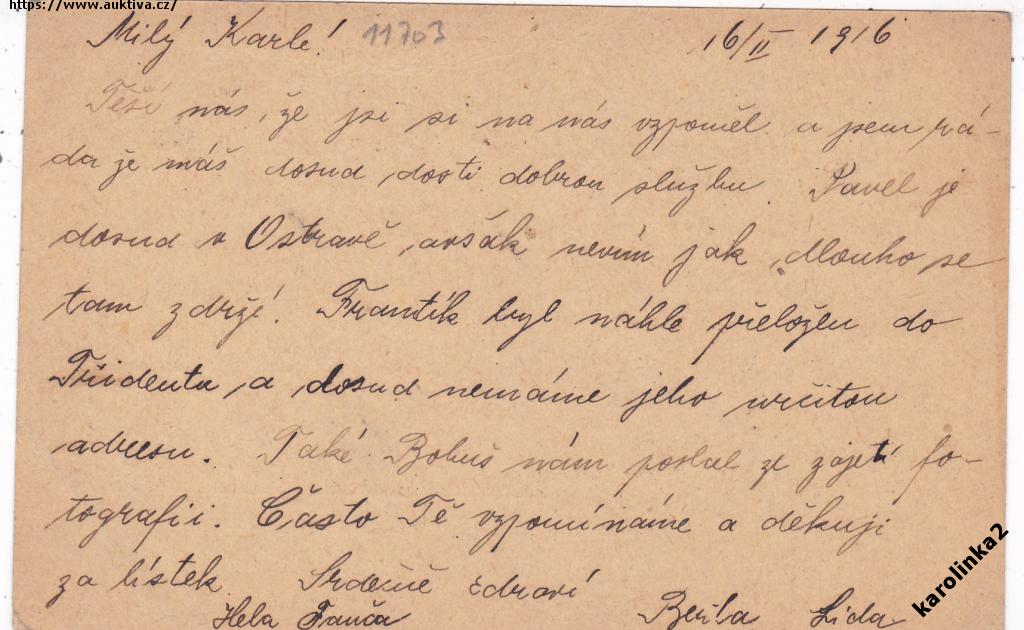 https://www.auktiva.cz/
Milý Karle! 11703 16/II 1916
Těší nás, že jsi si na nás vzpoměl a jsem rá-
da že máš dosud dosti dobrou službu. Pavel je
dosud v Ostravě, avšak nevím jak dlouho se
tam zdrží. Frantík byl náhle přeložen do
Tridentu a dosud nemáme jeho určitou
adresu. Také Bohuš nám poslal ze zajetí fo-
tografii. Často Tě vzpomínáme a děkuji
za lístek Srdečně zdraví
Hela Fanča Berta Lida
karolinka2